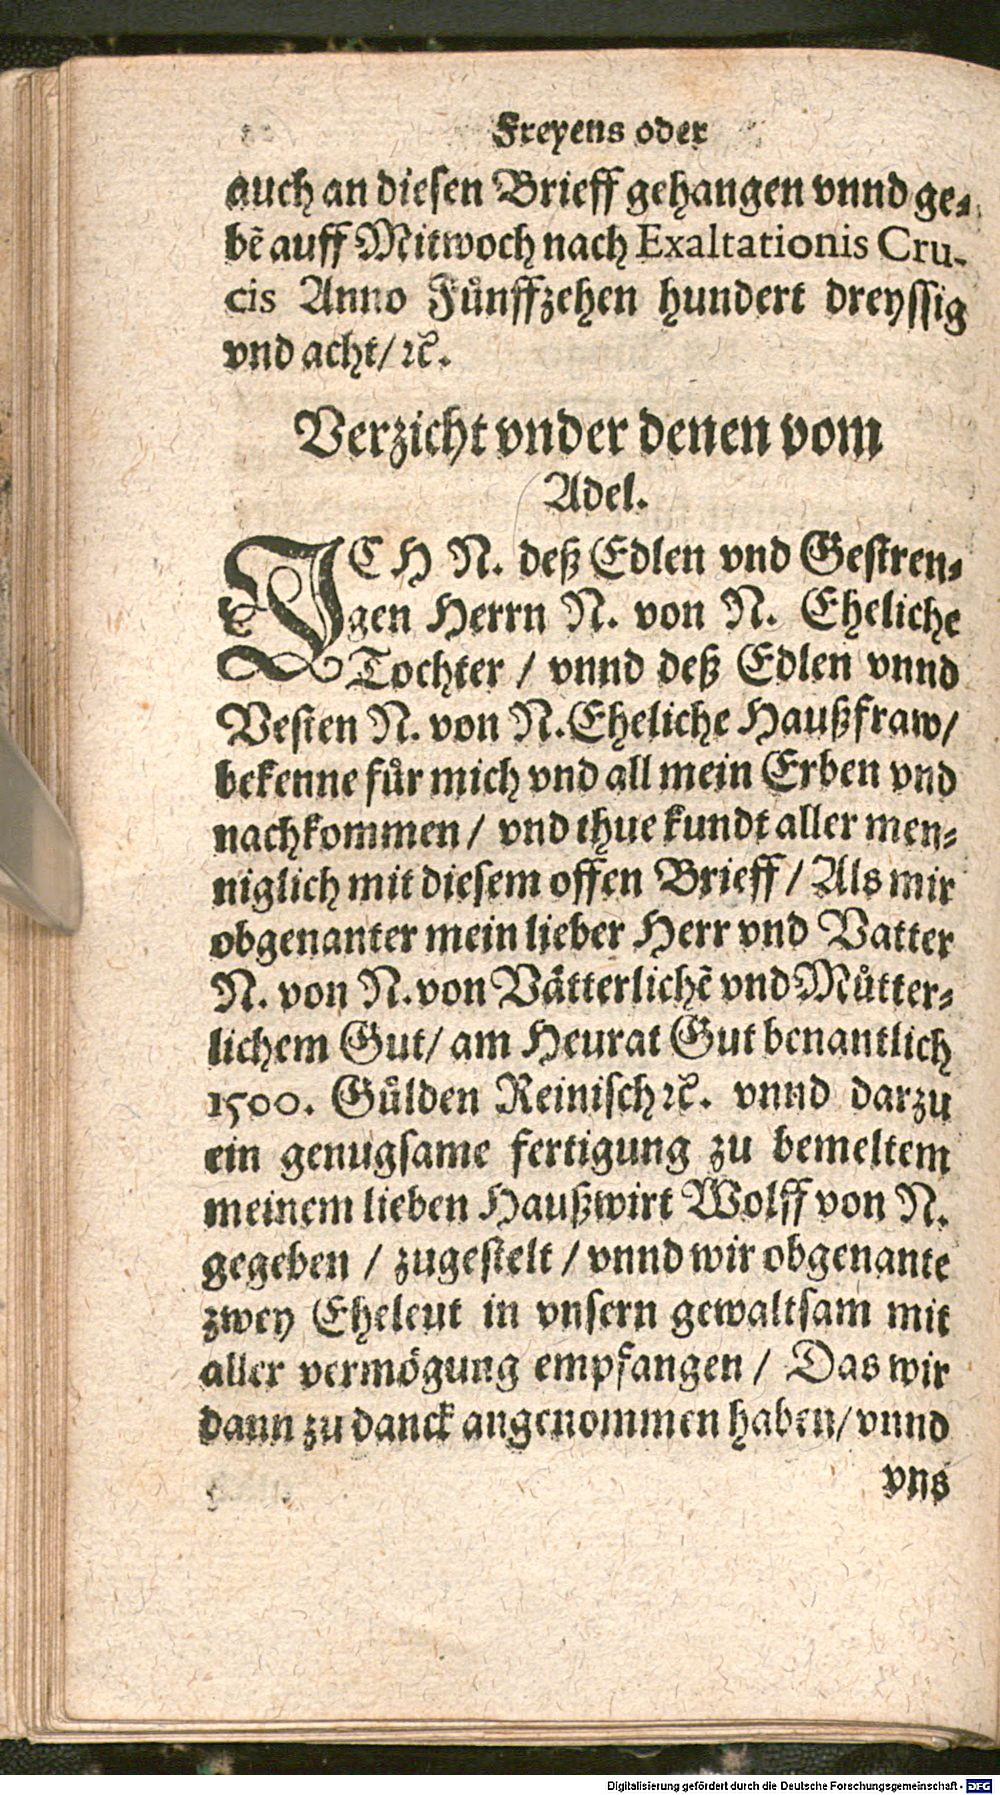 Freyens oder
auch an diesen Brieff gehangen vnnd ge-
bẽ auff Mitwoch nach Exaltationis Cru-
cis Anno Fuͤnffzehen hundert dreyssig
vnd acht/ ꝛc̃.
Verzicht vnder denen vom
Adel.
JCH N. deß Edlen vnd Gestren-
gen Herrn N. von N. Eheliche
Tochter / vnnd deß Edlen vnnd
Vesten N. von N. Eheliche Haußfraw/
bekenne fuͤr mich vnd all mein Erben vnd
nachkommen / vnd thue kundt aller men-
niglich mit diesem offen Brieff / Als mir
obgenanter mein lieber Herr vnd Vatter
N. von N. von Vaͤtterlichẽ vnd Muͤtter-
lichem Gut/ am Heurat Gut benantlich
1500. Guͤlden Reinisch ꝛc̃. vnnd darzu
ein genugsame fertigung zu bemeltem
meinem lieben Haußwirt Wolff von N.
gegeben / zugestelt / vnnd wir obgenante
zwey Eheleut in vnsern gewaltsam mit
aller vermoͤgung empfangen / Das wir
dann zu danck angenommen haben/ vnnd
vns
Digitalisierung gefördert durch die Deutsche Forschungsgemeinschaft - DFG